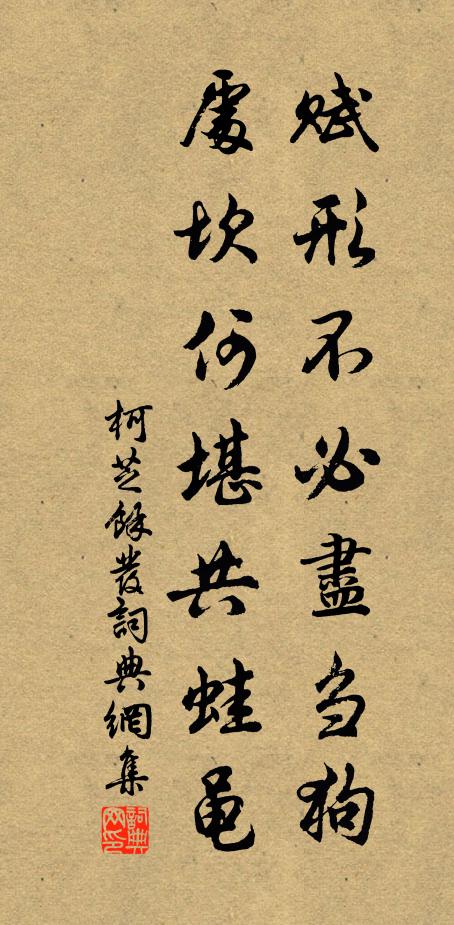 賦形不必盡芻狗
處坎何堪共蛙黽
柯芝餘叢詞典網集
詞典网印